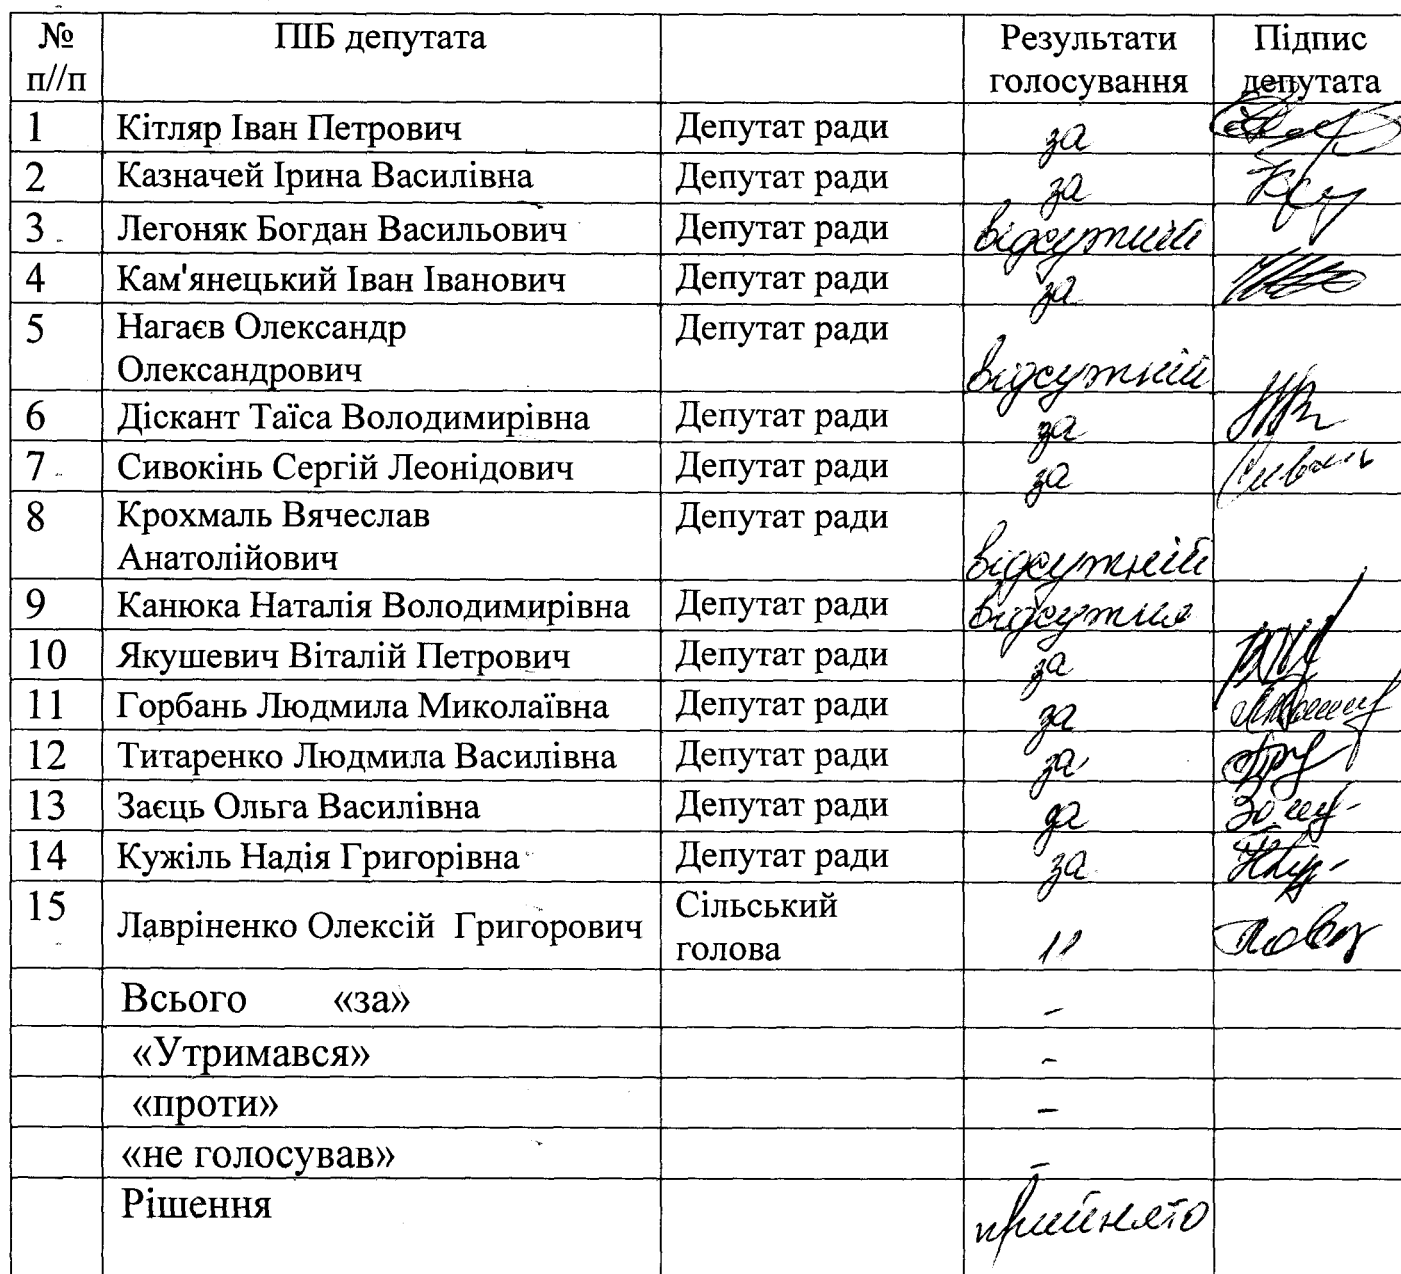 № п//п ПІБ депутата Результати голосування Підпис депутата
1 Кітляр Іван Петрович Депутат ради за
2 Казначей Ірина Василівна Депутат ради за
3 Легоняк Богдан Васильович Депутат ради відсутній
4 Кам'янецький Іван Іванович Депутат ради за
5 Нагаєв Олександр Депутат ради
Олександрович відсутній
6 Діскант Таїса Володимирівна Депутат ради за
7 Сивокінь Сергій Леонідович Депутат ради за
8 Крохмаль Вячеслав Депутат ради
Анатолійович відсутній
9 Канюка Наталія Володимирівна Депутат ради відсутня
10 Якушевич Віталій Петрович Депутат ради за
11 Горбань Людмила Миколаївна Депутат ради за
12 Титаренко Людмила Василівна Депутат ради за
13 Заєць Ольга Василівна Депутат ради за
14 Кужіль Надія Григорівна Депутат ради за
15 Лавріненко Олексій Григорович Сільський
голова 11
Всього «за» -
«Утримався» -
«проти» -
«не голосував» -
Рішення прийнято